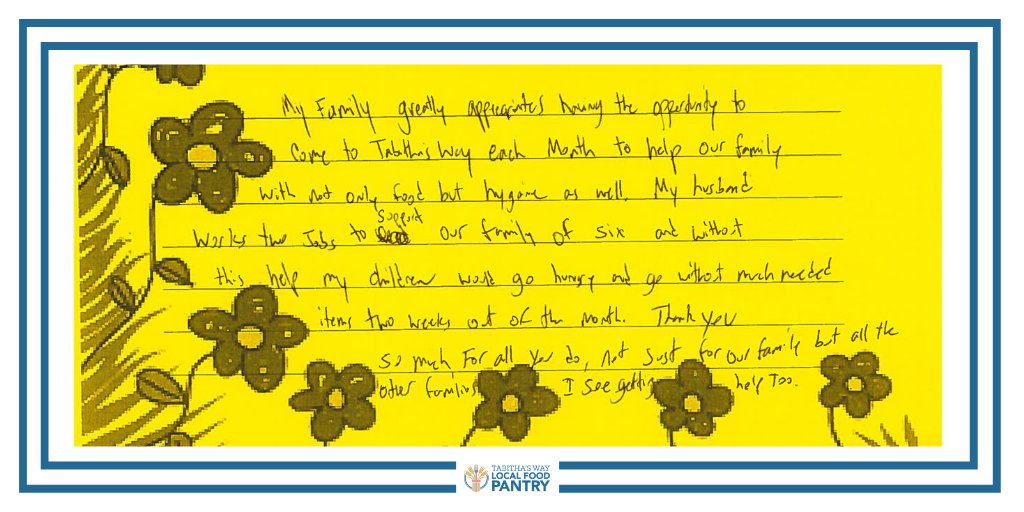 My Family greatly appreciates having the opportunity to
Come to Tabitha's Way each Month to help our family
with not only food but hygine as well. My husband
Works two Jobs to support our family of six and without
this help my children would go hungry and go without much needed
items two weeks out of the month. Thank you
so much For all you do, not Just for our family but all the
other families I see getting help Too.
TABITHA'S WAY
LOCAL FOOD
PANTRY